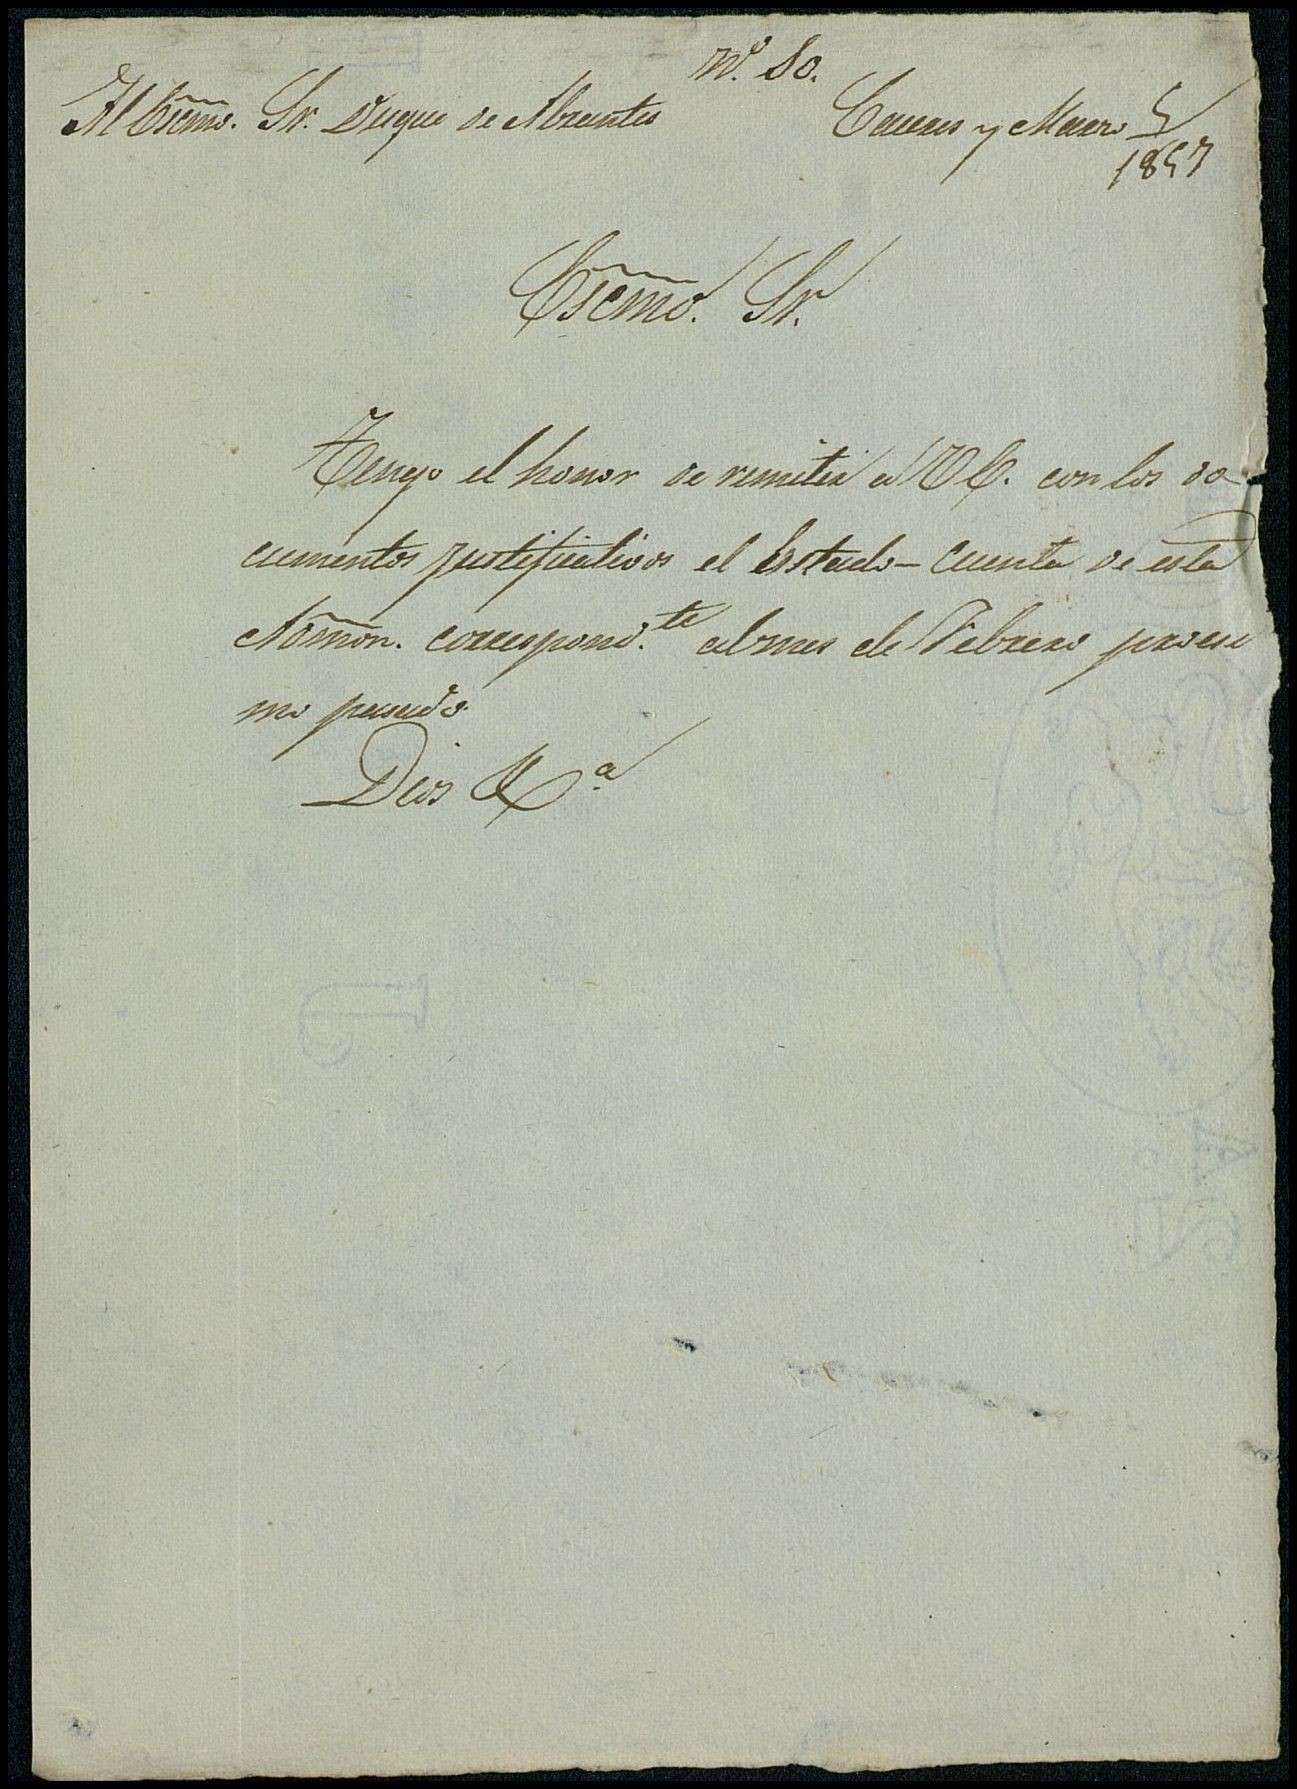 Nº. 80.
Al Escmo. Sr. Duque de Abrantes
Caceres y Marzo 5/1857
Escmo. Sr.
Tengo el honor de remitir a V E. con los do-
cumentos justificativos el Estado-cuenta de esta
Admon. correspond.te al mes de Febrero procsi
mo pasado.
Dios &.a